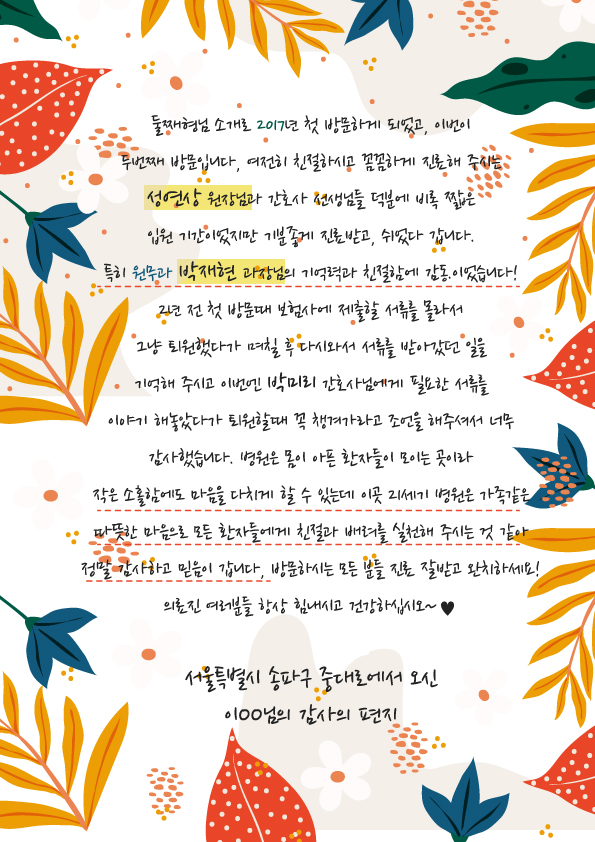 둘째형님 소개로 2017년 첫 방문하게 되었고, 이번이
두번째 방문입니다, 여전히 친절하시고 꼼꼼하게 진료해 주시는
성연상 원장님과 간호사 선생님들 덕분에 비록 짧은
입원 기간이었지만 기분좋게 진료받고, 쉬었다 갑니다.
특히 원무과 박재현 과장님의 기억력과 친절함에 감동.이었습니다!
2년 전 첫 방문때 보험사에 제출할 서류를 몰라서
그냥 퇴원했다가 며칠 후 다시와서 서류를 받아갔던 일을
기억해 주시고 이번엔 박미리 간호사님에게 필요한 서류를
이야기 해놓았다가 퇴원할때 꼭 챙겨가라고 조언을 해주셔서 너무
감사했습니다. 병원은 몸이 아픈 환자들이 모이는 곳이라
작은 소홀함에도 마음을 다치게 할 수 있는데 이곳 21세기 병원은 가족같은
따뜻한 마음으로 모든 환자들에게 친절과 배려를 실천해 주시는 것 같아
정말 감사하고 믿음이 갑니다, 방문하시는 모든 분들 진료 잘받고 완치하세요!
의료진 여러분들 항상 힘내시고 건강하십시오~ ♥
서울특별시 송파구 중대로에서 오신
이OO님의 감사의 편지